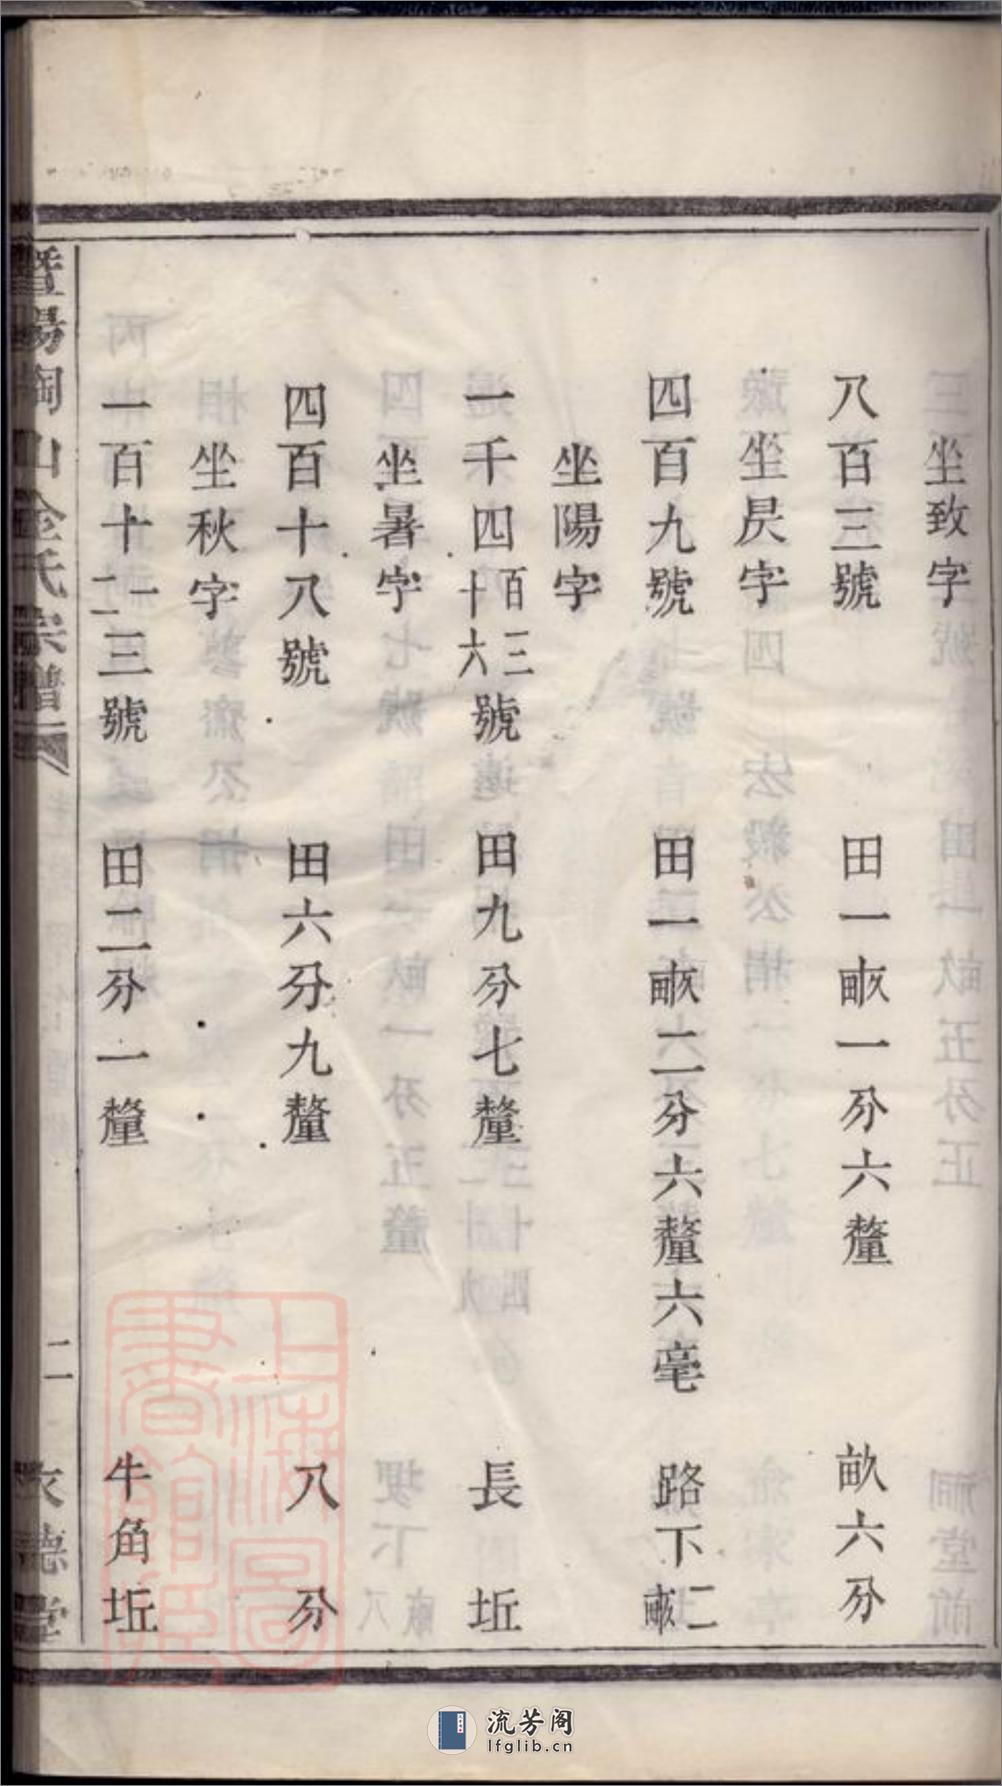 坐致字
八百三號 田一畝一分六釐 畝六分
坐昃字
四百九號 田一畝二分六釐六毫 路下二畝
坐陽字
一千四百三十六三號 田九分七釐 長坵
坐暑字
四百十八號 田六分九釐 八分
坐秋字
一百十一二三號 田二分一釐 牛角坵
暨陽陶山金氏宗譜 二 德堂
上海圖書館藏
流芳阁
lfglib.cn